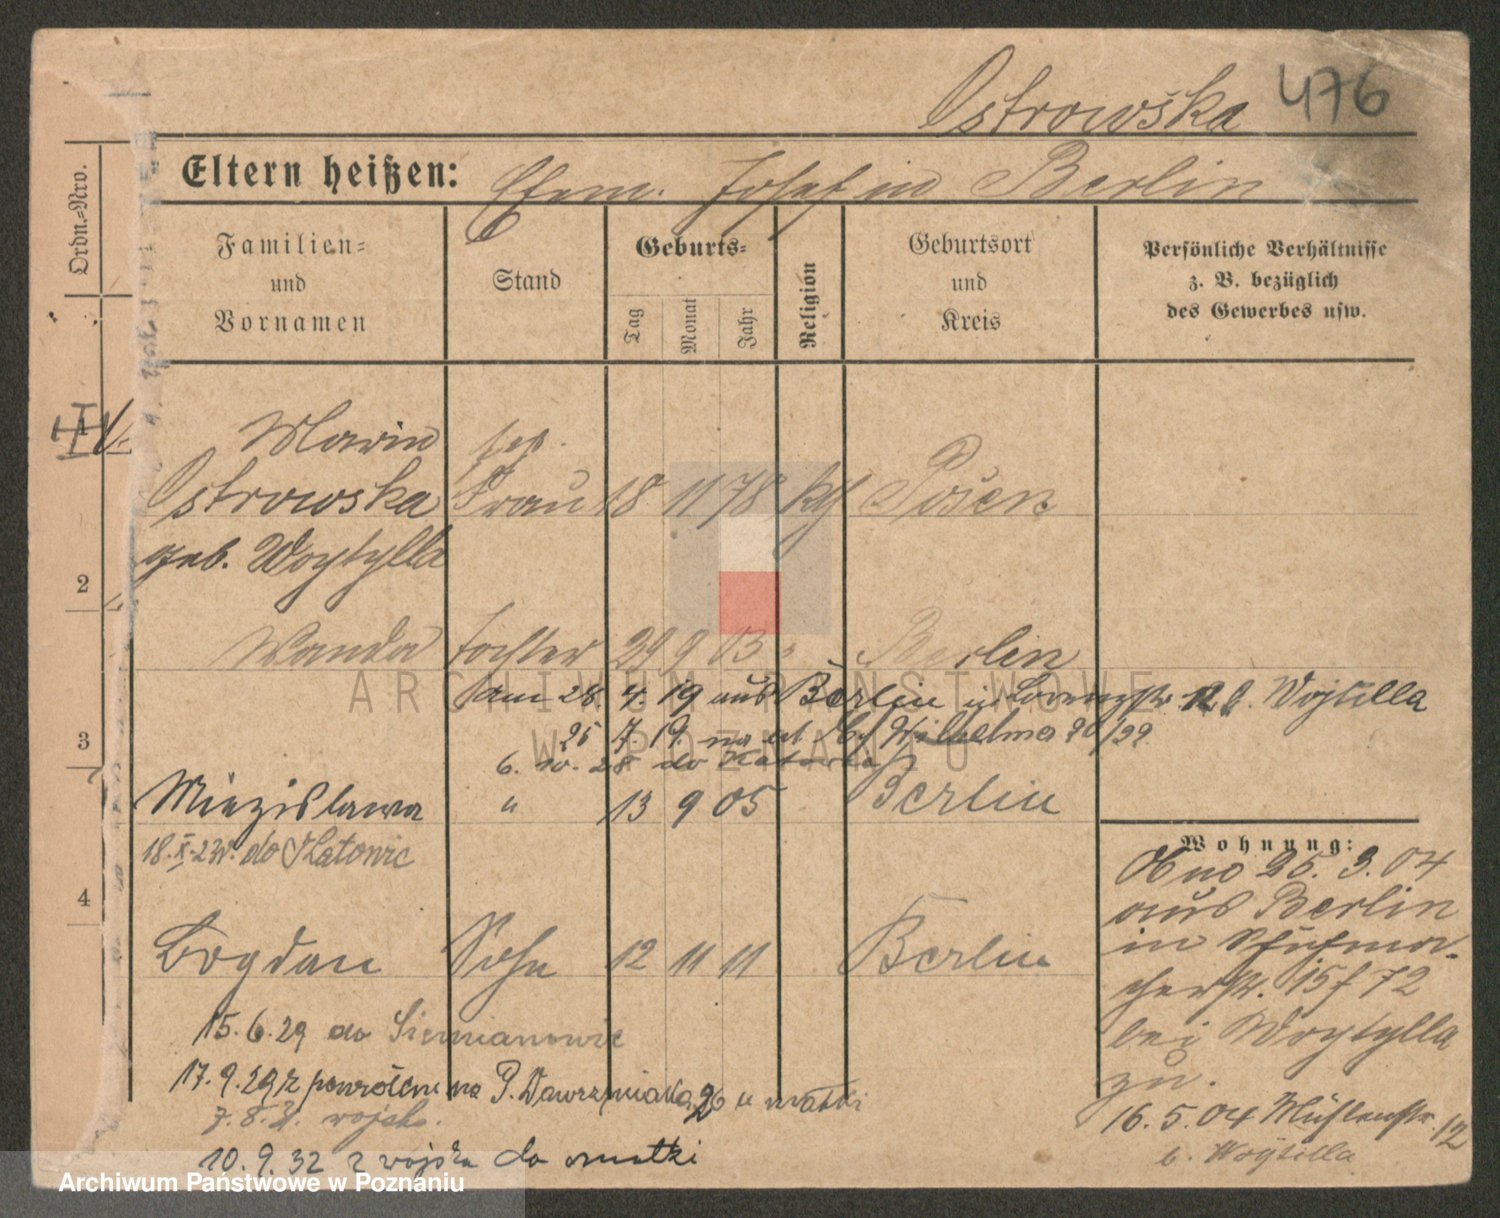 Ostrowska 476
Eltern heißen: Ehem. Josef in Berlin
Ordn.=Nro.
Familien= und Vornamen
Stand
Geburts=
Tag
Monat
Jahr
Religion
Geburtsort und Kreis
Persönliche Verhältnisse z. B. bezüglich des Gewerbes usw.
1
Maria
Ostrowska Frau 18 11 78 kth Posen
geb. Woytylla
2
Wanda Tochter 29 9 03 " Berlin
am 28. 4. 19 aus Berlin in Lorenzstr. 12 b. Wojtilla
25 7. 19. na ul. Wilhelma
6. 10. 28 do Katowic
3
Miezislawa " 13 9 05 Berlin
18.X.23r. do Katowic
4
Bogdan Sohn 12 11 11 Berlin
15.6.29 do Siemianowic
17.9.29 z powrotem na P. Wawrzyniaka 26 u matki
7.8.31. wojsko.
10.9.32 z wojska do matki
Wohnung:
25. 3. 04
aus Berlin
in Schuhma-
cherstr. 15 f 72
bei Woytylla
zu.
16.5.04 Mühlenstr. 12
b. Woytilla
ARCHIWUM PAŃSTWOWE
W POZNANIU
Archiwum Państwowe w Poznaniu